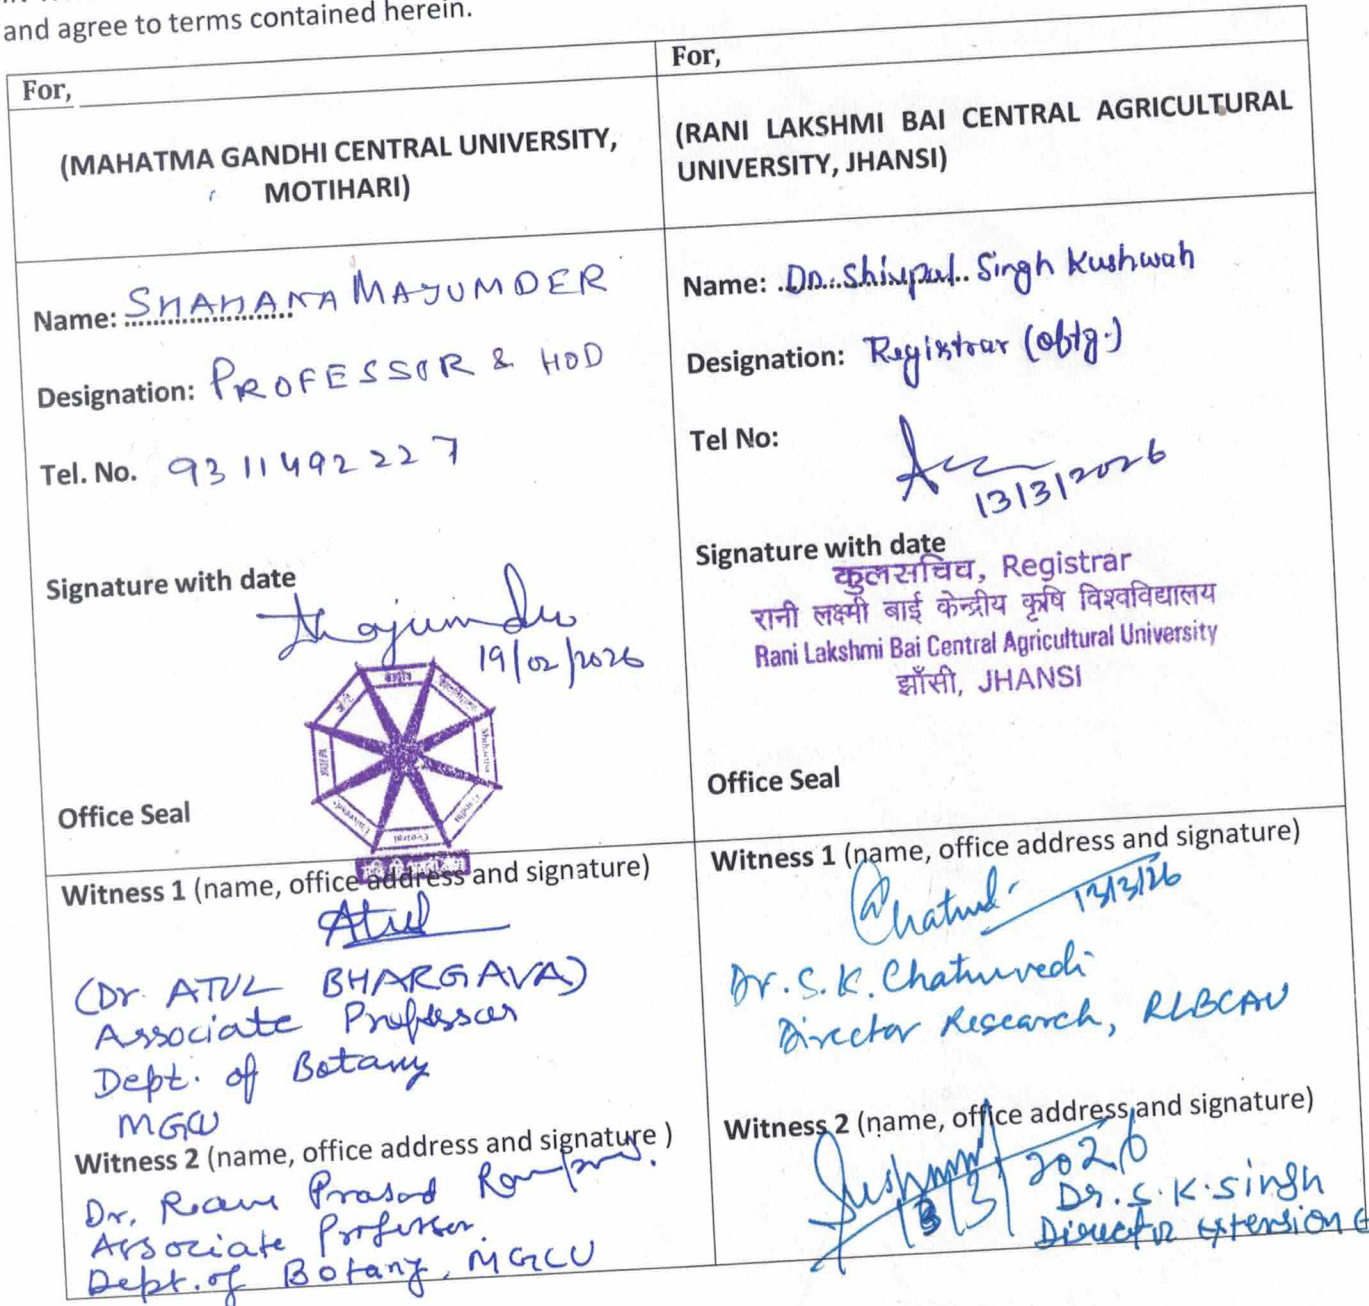 and agree to terms contained herein.
For,
(MAHATMA GANDHI CENTRAL UNIVERSITY,
MOTIHARI)
Name: SHAHANA MAJUMDER
Designation: PROFESSOR & HOD
Tel. No. 9311492227
Signature with date
19/02/2026
Office Seal
Witness 1 (name, office address and signature)
Atul
(Dr. ATUL BHARGAVA)
Associate Professor
Dept. of Botany
MGCU
Witness 2 (name, office address and signature )
Dr. Ram Prasad
Associate Professor
Dept. of Botany, MGCU
For,
(RANI LAKSHMI BAI CENTRAL AGRICULTURAL
UNIVERSITY, JHANSI)
Name: Dr. Shivpal Singh Kushwah
Designation: Registrar (obtg.)
Tel No:
13/3/2026
Signature with date
कुलसचिव, Registrar
रानी लक्ष्मी बाई केन्द्रीय कृषि विश्वविद्यालय
Rani Lakshmi Bai Central Agricultural University
झाँसी, JHANSI
Office Seal
Witness 1 (name, office address and signature)
13/3/26
Dr. S. K. Chaturvedi
Director Research, RLBCAU
Witness 2 (name, office address and signature)
13/3/2026
Dr. S. K. Singh
Director Extension